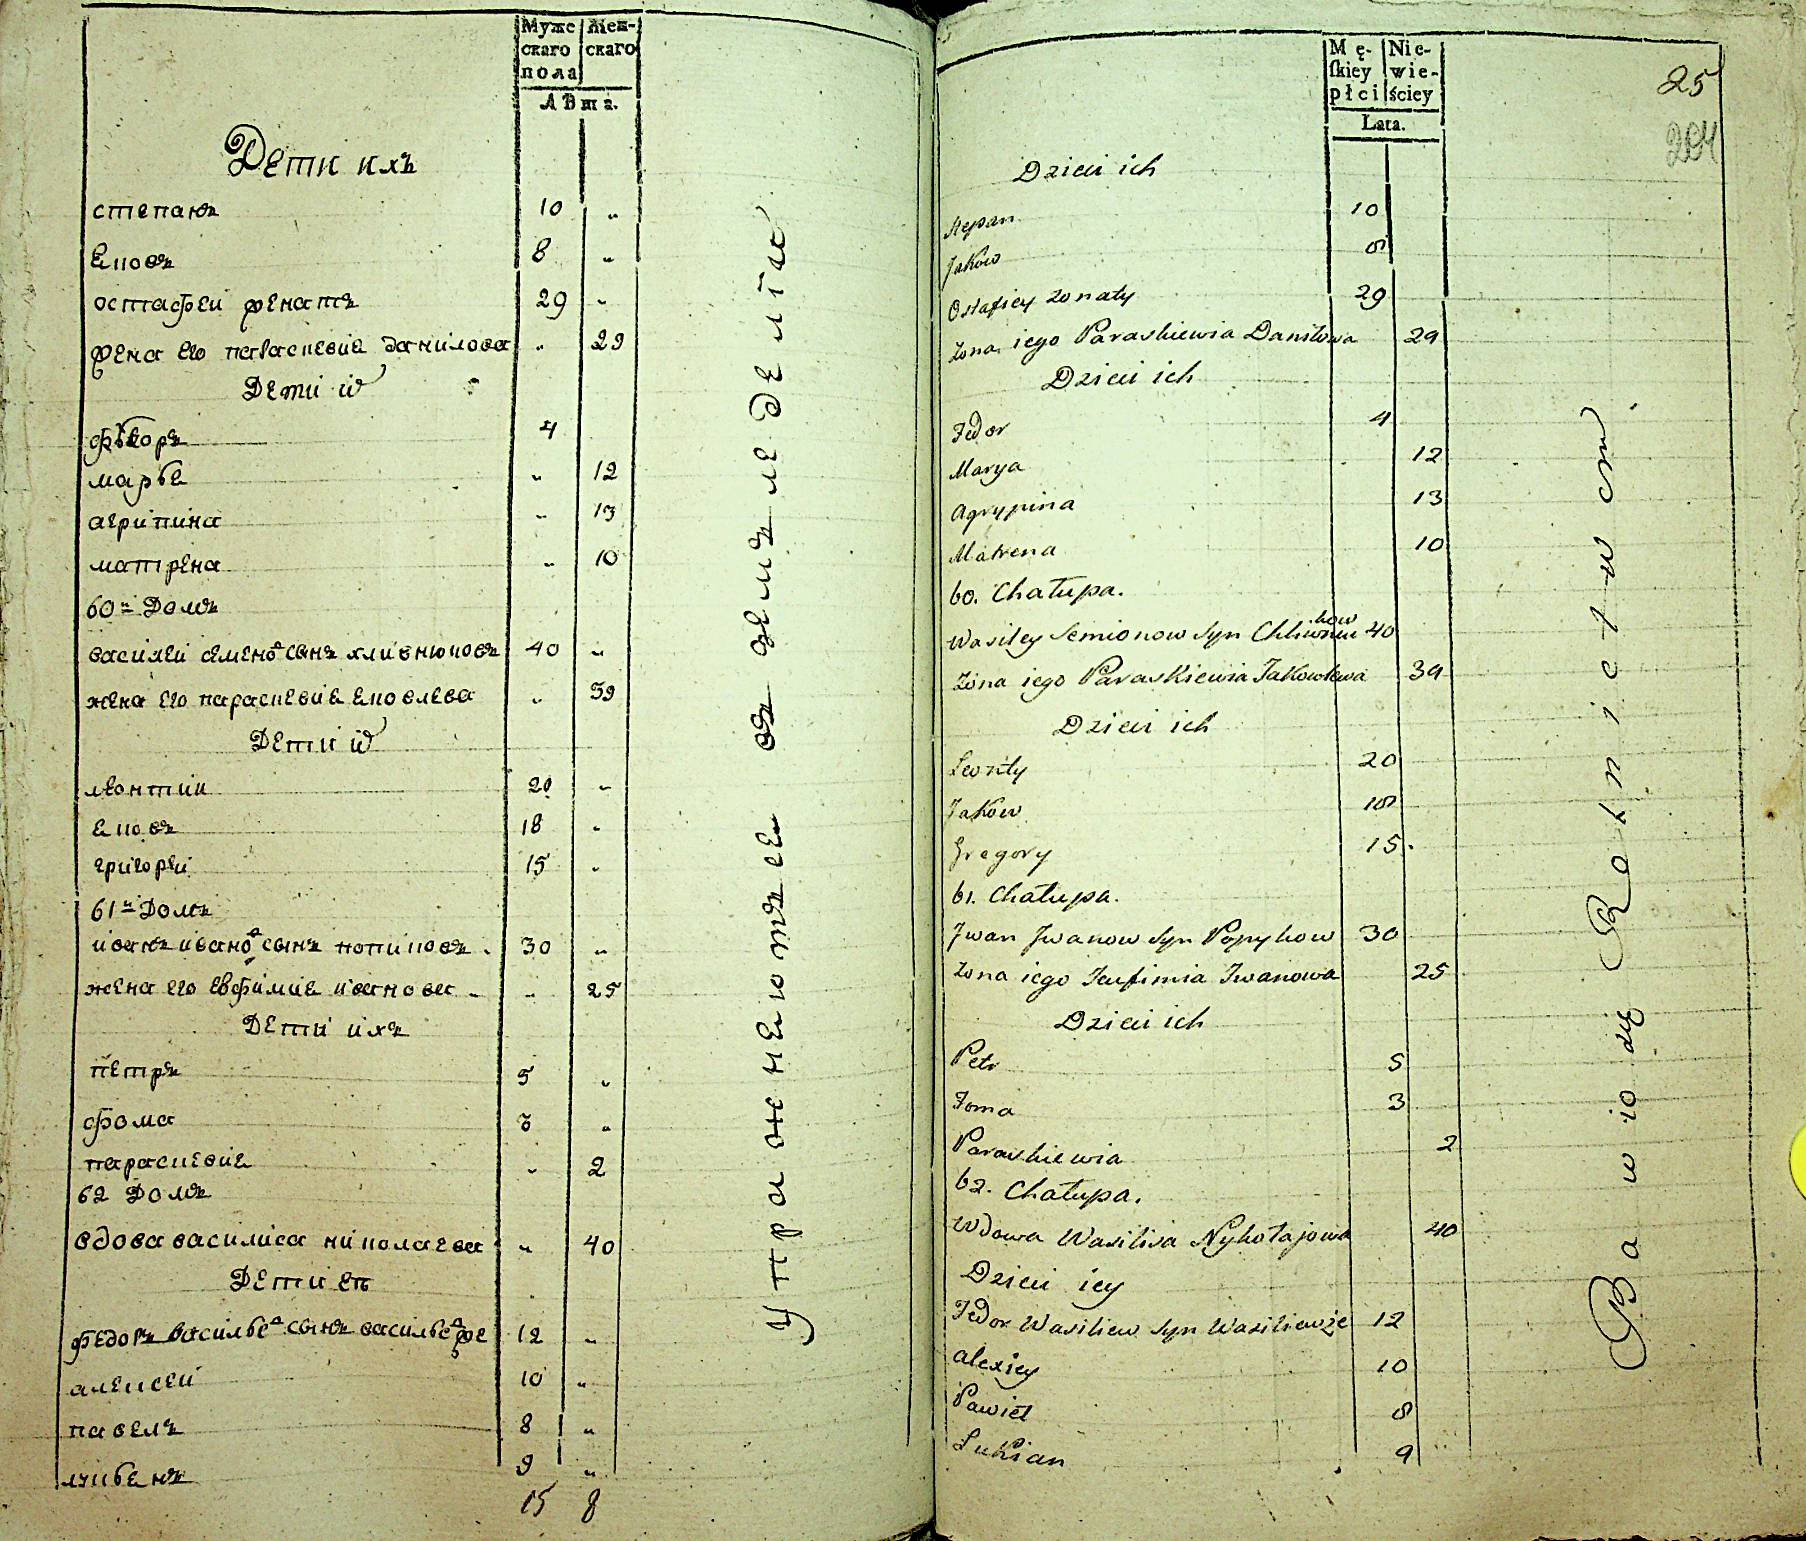 Муже Жен-
скаго скаго
пола
Лѣта.
Дети ихъ
степанъ 10 „
яковъ 8 „
остафеи женатъ 29 „
жена его параскевия данилова „ 29
Дети их
федоръ 4
марья „ 12
агрипина „ 13
матрена „ 10
60й Домъ
василеи семенов сынъ хливнюковъ 40 „
жена его параскевия яковлева „ 39
Дети их
леонтии 20 „
яковъ 18 „
григореи 15 „
61й Домъ
иванъ иванов сынъ попиковъ 30 „
жена его евфимия иванова „ 25
Дети ихъ
петръ 5 „
фома 3 „
параскевия „ 2
62 Домъ
вдова василиса николаева „ 40
Дети ея
федоръ васильев сынъ васильевже 12 „
алексеи 10 „
павелъ 8 „
лукьянъ 9 „
15 8
Упражняются въ земледелии
Mę- Nie-
skiey wie-
płci ściey
Lata.
25
204
Dzieci ich
Stepan 10
Jakow 8
Ostafiey żonaty 29
Żona iego Paraskiewia Daniłowa 29
Dzieci ich
Fedor 4
Marya 12
Agrypina 13
Matrena 10
60. Chałupa.
Wasiley Semionow syn Chliwniukow 40
Żona iego Paraskiewia Jakowlewa 39
Dzieci ich
Leonty 20
Jakow 18
Gregory 15.
61. Chałupa.
Jwan Jwanow syn Popykow 30
Żona iego Jeufimia Jwanowa 25
Dzieci ich
Petr 5
Foma 3
Paraskiewia 2
62. Chałupa.
Wdowa Wasilisa Nykołajowa 40
Dzieci iey
Fedor Wasiliew syn Wasiliewże 12
Alexiey 10
Pawieł 8
Łukian 9
Bawio się Rolnictwem